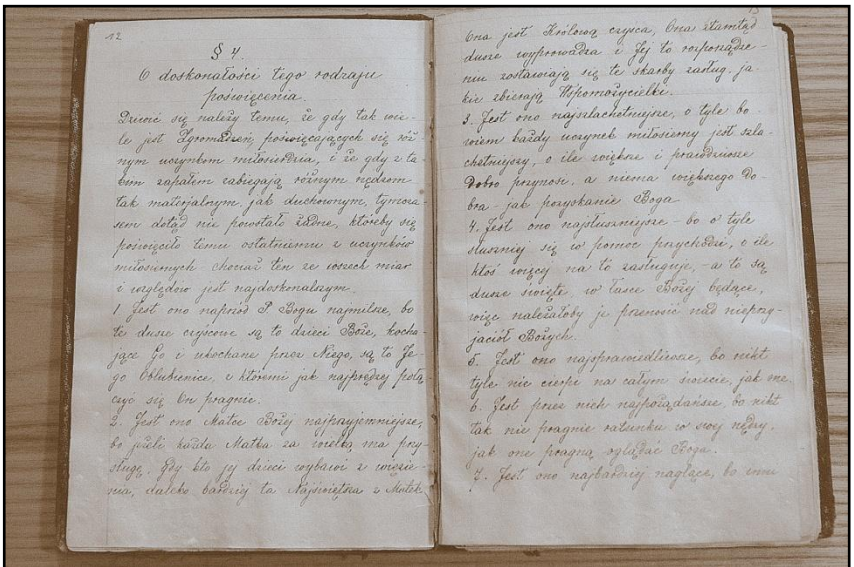 12
§ 4.
O doskonałości tego rodzaju
poświęcenia.
Dziwić się należy temu, że gdy tak wie-
le jest Zgromadzeń, poświęcających się róż
nym uczynkom miłosierdzia, i że gdy z ta-
kim zapałem zabiegają różnym nędzom
tak materjalnym, jak duchownym, tymcza-
sem dotąd nie powstało żadne, któreby się
poświęciło temu ostatniemu z uczynków
miłosiernych chociaż ten ze wszech miar
i względów jest najdoskonalszym.
1. Jest ono naprzód P. Bogu najmilsze, bo
te dusze czyścowe są to dzieci Boże, kocha-
jące Go i ukochane przez Niego, są to Je-
go Oblubienice, z któremi jak najprędzej połą-
czyć się On pragnie.
2. Jest ono Matce Bożej najprzyjemniejsze,
bo jeżeli każda Matka za wielką ma przy-
sługę, gdy kto jej dzieci wybawi z więzie-
nia, daleko bardziej ta Najświętsza z Matek
13
Ona jest Królową czyśca, Ona stamtąd
dusze wyprowadza i Jej to rozporządze-
niu zostawiają się te skarby zasług, ja-
kie zbierają Wspomożycielki.
3. Jest ono najszlachetniejsze, o tyle bo-
wiem każdy uczynek miłosierny jest szla-
chetniejszy, o ile większe i prawdziwsze
dobro przynosi, a niema większego do-
bra – jak pozyskanie Boga
4. Jest ono najsłuszniejsze – bo o tyle
słuszniej się w pomoc przychodzi, o ile
ktoś więcej na to zasługuje, – a to są
dusze święte, w łasce Bożej będące,
więc należałoby je przenosić nad nieprzy-
jaciół Bożych.
5. Jest ono najsprawiedliwsze, bo nikt
tyle nie cierpi na całym świecie, jak one.
6. Jest przez nich najpożądańsze, bo nikt
tak nie pragnie ratunku w swej nędzy,
jak one pragną oglądać Boga.
7. Jest ono najbardziej naglące, bo inne